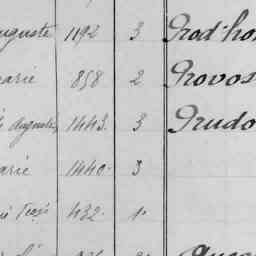 uguste 1192 3 Prod'ho
arie 858 2 Provos
Auguste 1443. 3 Prudo
arie 1440. 3
432. 1.